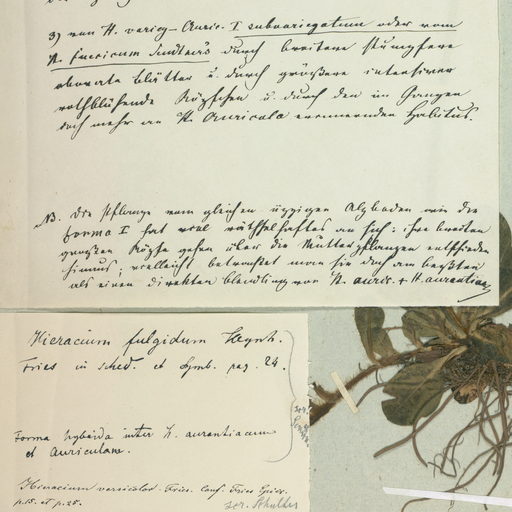 3) von H. varieg-Auric. I subvariegatum oder vom
H. fuscicum Sendtner's durch breitere stumpfere
obovate Blätter u. durch größere intensiver
rothblühende Köpfchen u. durch den im Ganzen
doch mehr an H. Auricula erinnernden Habitus.
NB. Die Pflanze vom gleichen üppigen Alpboden wie die
forma I hat viel räthselhaftes an sich: ihre breiten
großen Köpfe gehen über die Mutterpflanzen entschieden
hinaus; vielleicht betrachtet man sie doch am beßten
als einen direkten blendling von H. auric. + H. aurantiac.
Hieracium fulgidum Heynh.
Fries in sched. et Symb. pag. 24.
Forma hybrida inter H. aurantiacum
et Auriculam.
Hieracium versicolor Fries. Conf. Fries Epicr.
p.15. et p.25.
scr. Schultes